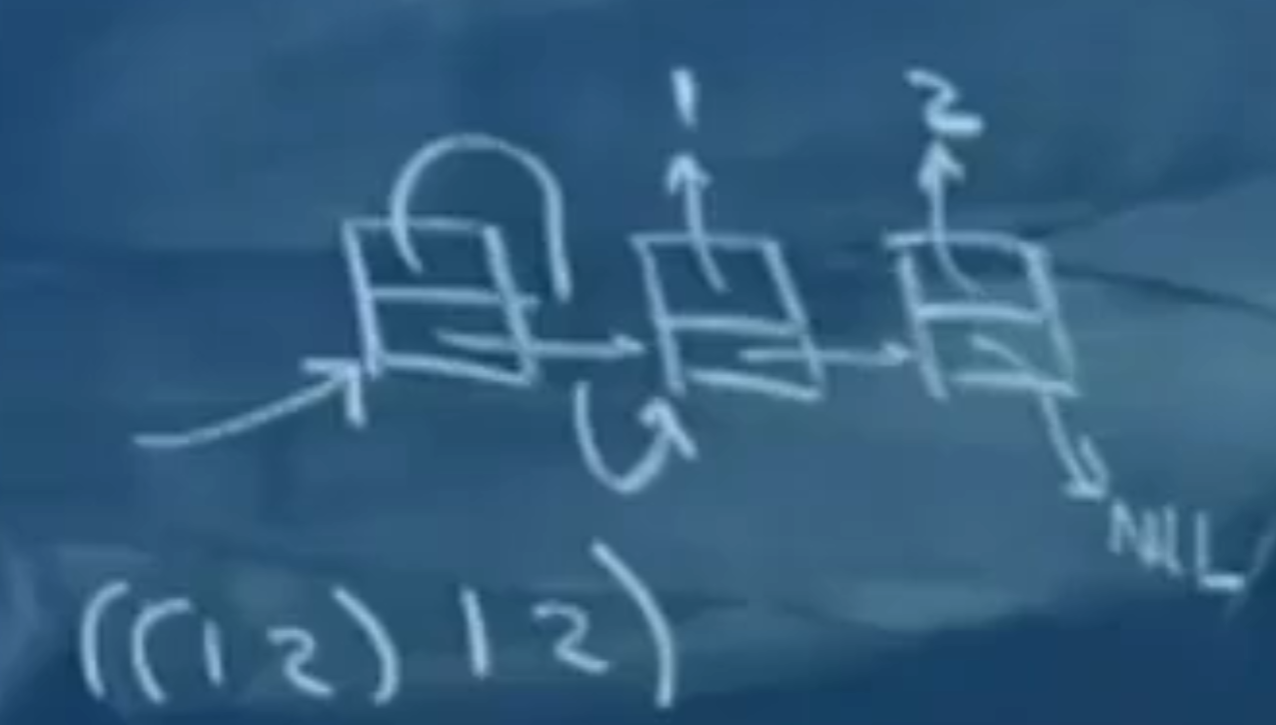 1 2
NIL
((12) 12)